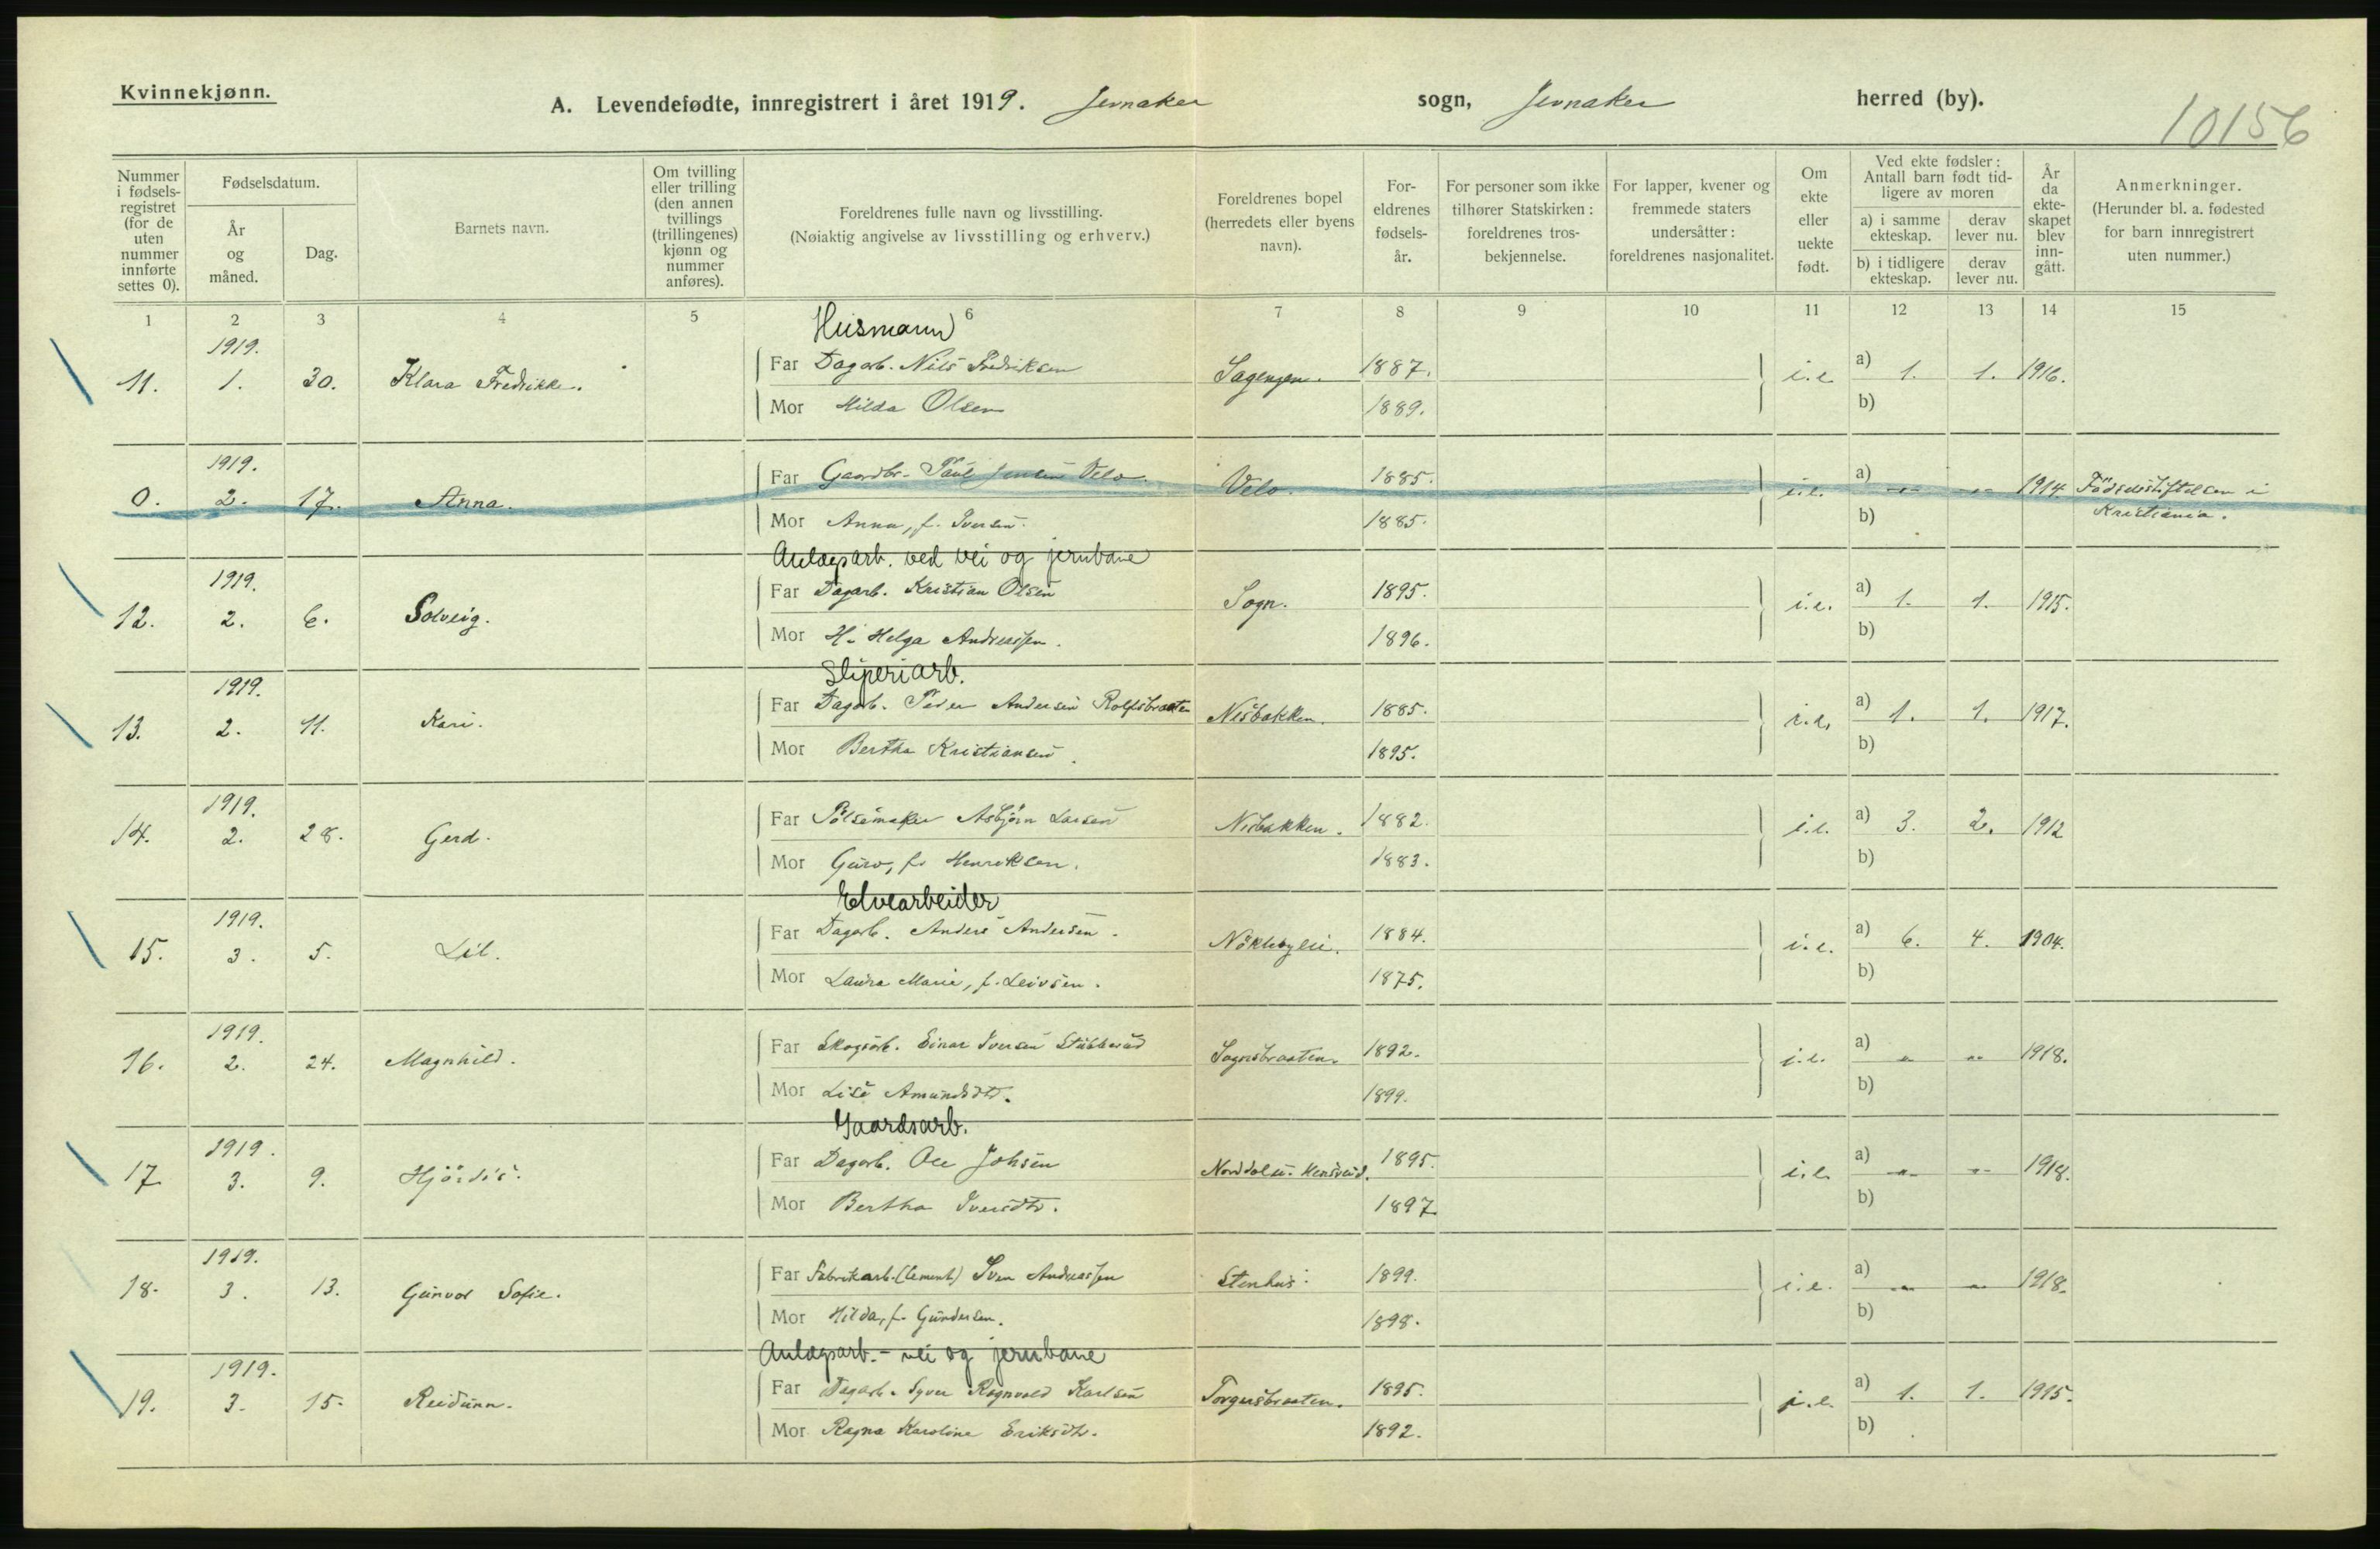 Kvinnekjønn.
A. Levendefødte, innregistrert i året 1919. Jevnaker sogn, Jevnaker herred (by).
10156
Nummer i fødsels-registret (for de uten nummer innførte settes 0).
Fødselsdatum.
År og måned.
Dag.
Barnets navn.
Om tvilling eller trilling (den annen tvillings (trillingenes) kjønn og nummer anføres).
Foreldrenes fulle navn og livsstilling.
(Nøiaktig angivelse av livsstilling og erhverv.)
Foreldrenes bopel (herredets eller byens navn).
For-eldrenes fødsels-år.
For personer som ikke tilhører Statskirken: foreldrenes tros-bekjennelse.
For lapper, kvener og fremmede staters undersåtter: foreldrenes nasjonalitet.
Om ekte eller uekte født.
Ved ekte fødsler: Antall barn født tid-ligere av moren
a) i samme ekteskap.
derav lever nu.
b) i tidligere ekteskap.
derav lever nu.
År da ekte-skapet blev inn-gått.
Anmerkninger.
(Herunder bl. a. fødested for barn innregistrert uten nummer.)
1 2 3 4 5 6 7 8 9 10 11 12 13 14 15
Husmann
1919.
11. 1. 30. Klara Fredrikke. Far Dagarb. Nils Fredriksen Sagengen. 1887. i.e. a) 1. 1. 1916.
Mor Hilda Olsen 1889. b)
1919.
0. 2. 17. Anna. Far Gaardbr. Paul Jensen Velo Velo. 1885. i.e. a) - - 1914 Fødselsstiftelsen i
Mor Anna, f. Iversen. 1885. b) Kristiania.
Anlægsarb. ved vei og jernbane
1919.
12. 2. 6. Solveig. Far Dagarb. Kristian Olsen Sogn. 1895. i.e. a) 1. 1. 1915.
Mor H. Helga Andreassen. 1896. b)
Sliperiarb.
1919.
13. 2. 11. Kari. Far Dagarb. Peder Andersen Rolfsbraaten Nesbakken. 1885. i.e. a) 1. 1. 1917.
Mor Bertha Kristiansen. 1895. b)
1919.
14. 2. 28. Gerd. Far Pölsemaker Asbjørn Larsen Nesbakken. 1882. i.e. a) 3. 2. 1912
Mor Guro, f. Henriksen. 1883. b)
Elvearbeider
1919.
15. 3. 5. Lil. Far Dagarb. Anders Andersen. Nöklebylei. 1884. i.e. a) 6. 4. 1904.
Mor Laura Marie, f. Leivsen. 1875. b)
1919.
16. 2. 24. Magnhild. Far Skogsarb. Einar Iversen Stubberud Sognsbraaten. 1892. i.e. a) - - 1918.
Mor Lise Amundsdtr. 1899. b)
Gaardsarb.
1919.
17. 3. 9. Hjördis. Far Dagarb. Ole Johsen Norddalen. 1895. i.e. a) - - 1918.
Mor Bertha Iversdtr. 1897. b)
1919.
18. 3. 13. Gunvor Sofie. Far Fabrikarb. (Cement) Sven Andreassen Stenhus. 1899. i.e. a) - - 1918.
Mor Hilda, f. Gundersen. 1898. b)
Anlægsarb. - vei og jernbane
1919.
19. 3. 15. Reidunn. Far Dagarb. Syver Ragnvald Karlsen Torgersbraaten. 1895. i.e. a) 1. 1. 1915.
Mor Ragna Karoline Eriksdtr. 1892. b)